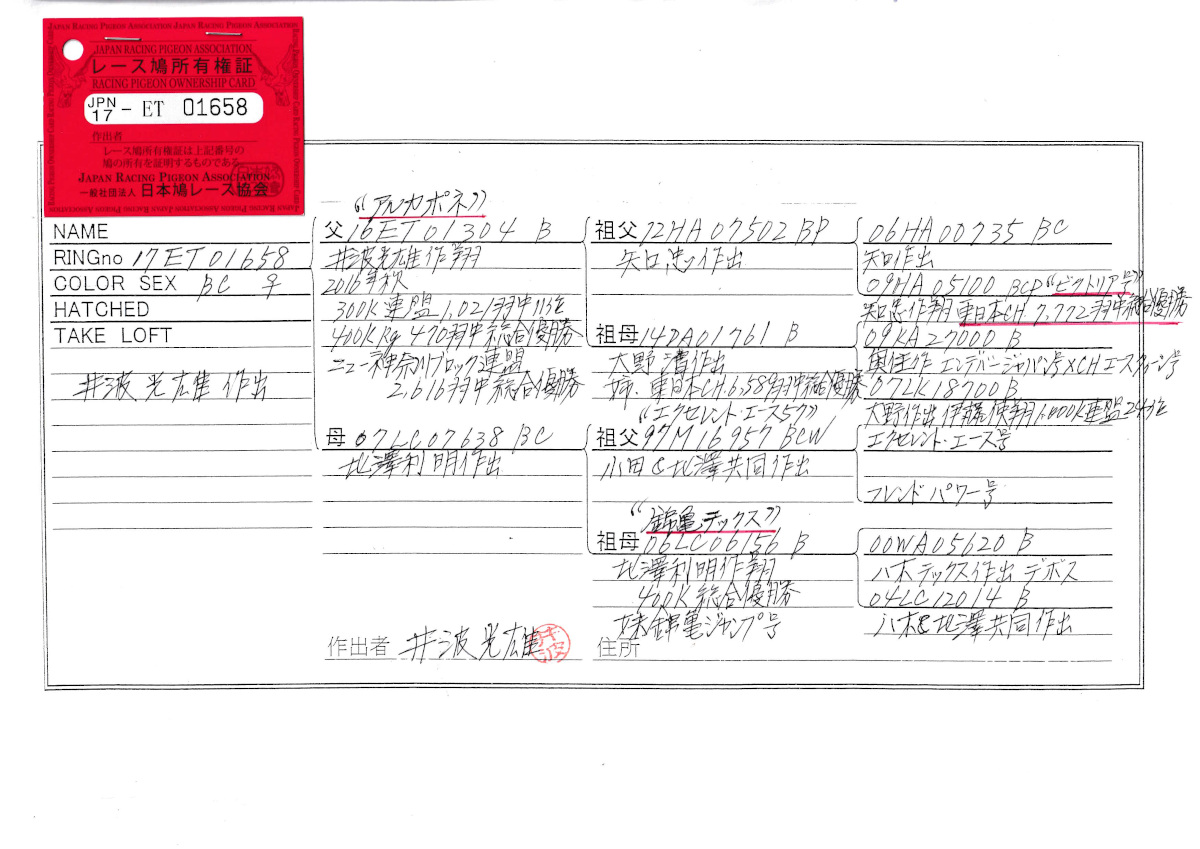 JAPAN RACING PIGEON ASSOCIATION JAPAN RACING PIGEON ASSOCIATION
JAPAN RACING PIGEON ASSOCIATION
レース鳩所有権証
RACING PIGEON OWNERSHIP CARD
JPN 17 - ET 01658
作出者
レース鳩所有権証は上記番号の
鳩の所有を証明するものである。
JAPAN RACING PIGEON ASSOCIATION
一般社団法人 日本鳩レース協会
NAME
RINGno 17ET01658
COLOR SEX BC ♀
HATCHED
TAKE LOFT
井波光雄 作出
"アルカポネ"
父 16ET01304 B
井波光雄作翔
2016年秋
300K連盟1,021羽中11位
400Kkg 470羽中総合優勝
ニュー神奈川ブロック連盟
2.616羽中総合優勝
母 07LC07638 BC
北澤利明作出
祖父 12HA07502 BP
矢口忠ッ作出
祖母 14DA01761 B
大野清作出
姉.東日本CH.6.589羽中総合優勝
"エクセレント・エース57"
祖父 97M16957 BCW
小田&北澤共同作出
"錦亀テックス"
祖母 06LC06156 B
北澤利明作翔
400K総合優勝
妹錦亀ジャンプ号
06HA00735 BC
矢口作出
09HA05100 BCP "ビクトリア号"
東日本CH 7,772羽中総合優勝
09KA27000 B
作 エンデバージャパン号XCHエースクィーン号
07LK18700 B
大野作出 伊藤 使翔1.000K連盟24位
エクセレント・エース号
フレンドパワー号
00WA05620 B
八木テックス作出 デボス
04LC12014 B
八木&北澤共同作出
作出者 井波光雄 井波
住所